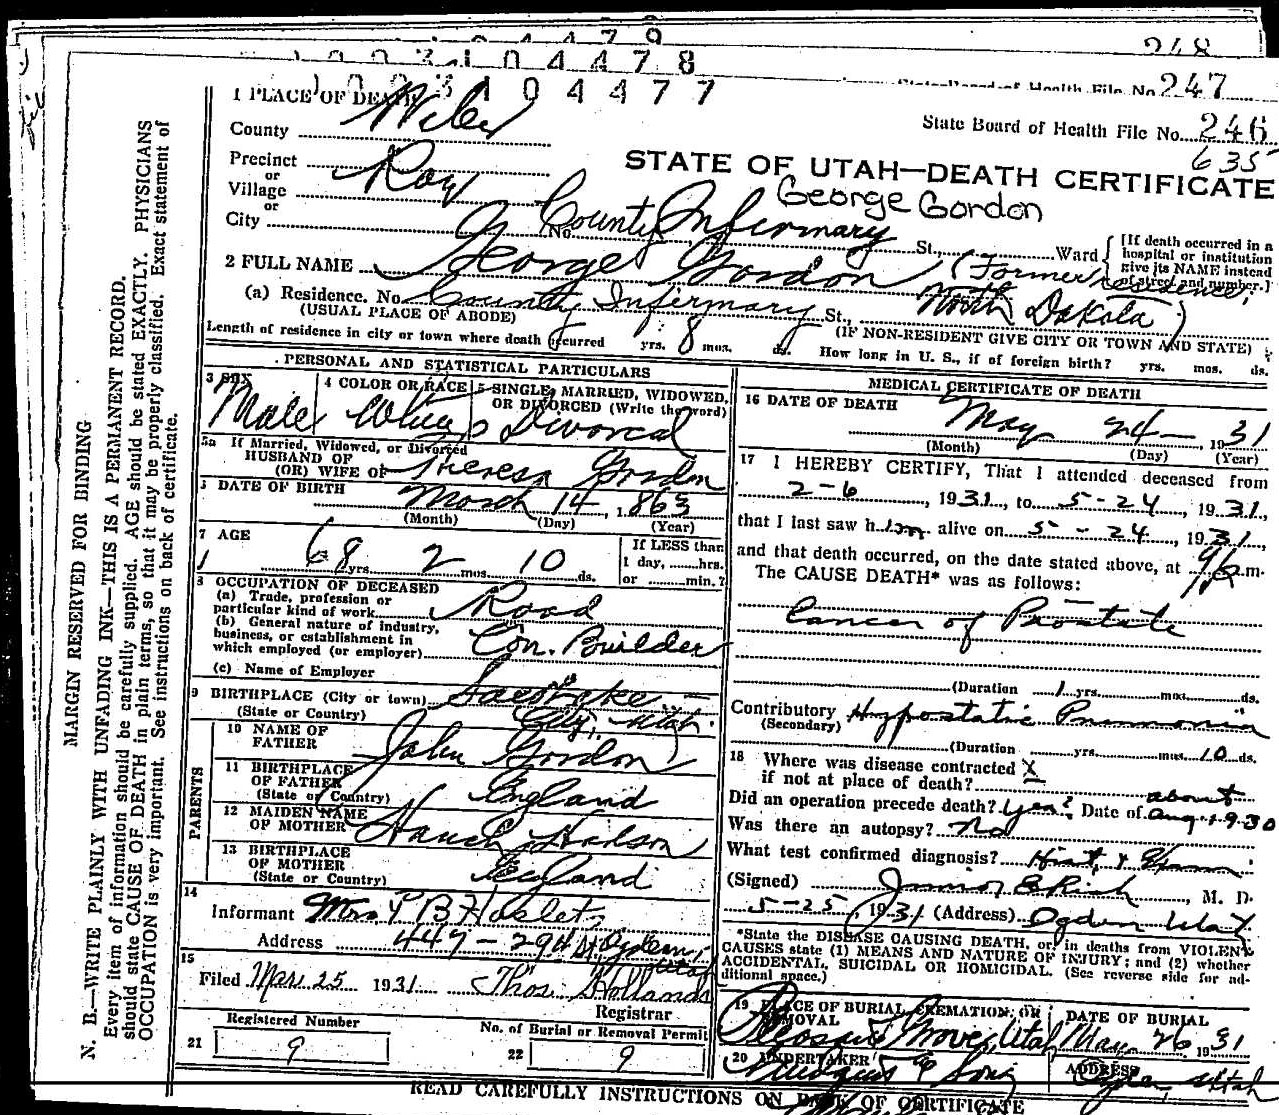 248
1 0 0 3 1 0 4 4 7 8
State Board of Health File No. 247
1 0 0 3 1 0 4 4 7 7
1 PLACE OF DEATH
State Board of Health File No. 246
635
County Weber
STATE OF UTAH—DEATH CERTIFICATE
George Gordon
Precinct
or
Village Roy
or
City No. County Infirmary St., Ward
[If death occurred in a hospital or institution give its NAME instead of street and number.]
2 FULL NAME George Gordon (Former residence,
(a) Residence. No. County Infirmary St., North Dakota)
(USUAL PLACE OF ABODE) (IF NON-RESIDENT GIVE CITY OR TOWN AND STATE)
Length of residence in city or town where death occurred yrs. 8 mos. ds. How long in U. S., if of foreign birth? yrs. mos. ds.
PERSONAL AND STATISTICAL PARTICULARS
3 SEX Male
4 COLOR OR RACE White
5 SINGLE, MARRIED, WIDOWED, OR DIVORCED (Write the word) Divorced
5a If Married, Widowed, or Divorced
HUSBAND OF
(OR) WIFE OF Theresa Gordon
6 DATE OF BIRTH March 14, 1863
(Month) (Day) (Year)
7 AGE 68 yrs. 2 mos. 10 ds.
If LESS than 1 day, hrs. or min.?
8 OCCUPATION OF DECEASED
(a) Trade, profession or particular kind of work Road
(b) General nature of industry, business, or establishment in which employed (or employer) Con. Builder
(c) Name of Employer
9 BIRTHPLACE (City or town) Salt Lake
(State or Country) City, Utah
PARENTS
10 NAME OF FATHER John Gordon
11 BIRTHPLACE OF FATHER (State or Country) England
12 MAIDEN NAME OF MOTHER Hudson
13 BIRTHPLACE OF MOTHER (State or Country) England
14
Informant Mrs
Address 447 - 29th St Ogden, Utah
15
Filed 25 1931 Thos Hollands
Registrar
Registered Number
21 9
No. of Burial or Removal Permit
22 9
MEDICAL CERTIFICATE OF DEATH
16 DATE OF DEATH May 24 1931
(Month) (Day) (Year)
17 I HEREBY CERTIFY, That I attended deceased from
2-6, 1931, to 5-24, 1931,
that I last saw him alive on 5-24, 1931,
and that death occurred, on the date stated above, at m.
The CAUSE DEATH* was as follows:
Cancer of Prostate
(Duration 1 yrs. mos. ds.
Contributory Hypostatic Pneumonia
(Secondary)
(Duration yrs. mos. 10 ds.
18 Where was disease contracted
if not at place of death? X
Did an operation precede death? yes. Date of about Aug. 1930
Was there an autopsy? No
What test confirmed diagnosis? Hist. &
(Signed) Junior E Rich, M. D.
5-25, 1931 (Address) Ogden Utah
*State the DISEASE CAUSING DEATH, or, in deaths from VIOLENT CAUSES state (1) MEANS AND NATURE OF INJURY; and (2) whether ACCIDENTAL, SUICIDAL OR HOMICIDAL. (See reverse side for additional space.)
19 PLACE OF BURIAL, CREMATION, OR REMOVAL Pleasant Grove, Utah
DATE OF BURIAL May 26 1931
20 UNDERTAKER & Sons
ADDRESS Ogden Utah
READ CAREFULLY INSTRUCTIONS ON BACK OF CERTIFICATE
MARGIN RESERVED FOR BINDING
N. B.—WRITE PLAINLY WITH UNFADING INK—THIS IS A PERMANENT RECORD.
Every item of information should be carefully supplied. AGE should be stated EXACTLY. PHYSICIANS
should state CAUSE OF DEATH in plain terms, so that it may be properly classified. Exact statement of
OCCUPATION is very important. See instructions on back of certificate.